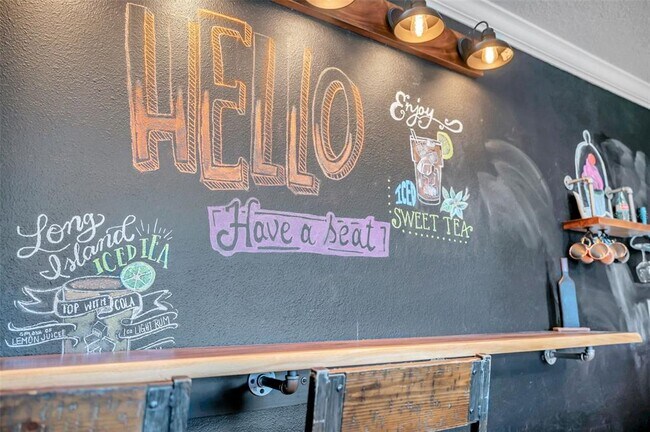 HELLO
Have a seat
Enjoy
ICED
SWEET TEA
Long
Island
ICED TEA
TOP WITH COLA
SPLASH OF
LEMON JUICE
LIGHT RUM